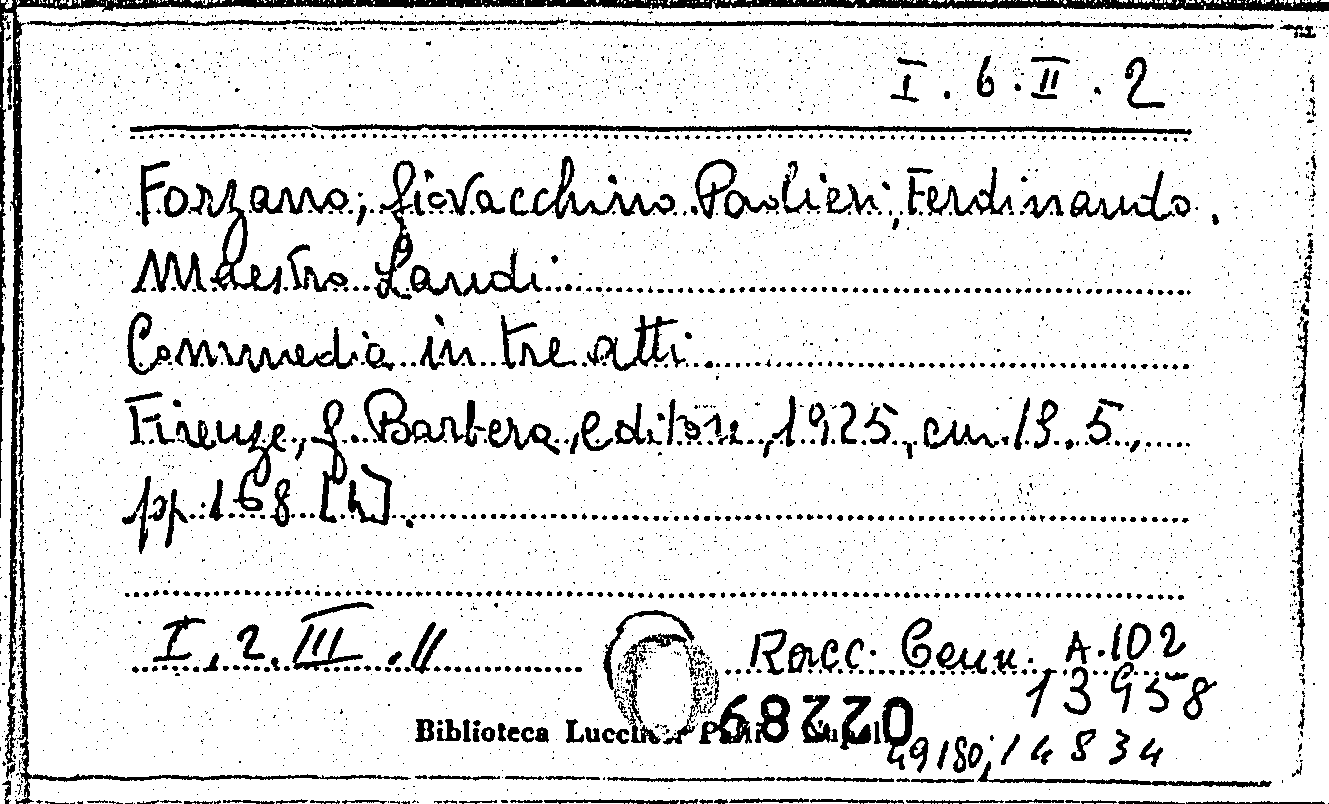 I . 6 . II . 2
Forzano, Giovacchino. Paolieri, Ferdinando.
Maestro Landi
Commedia in tre atti.
Firenze, G. Barbera, editore, 1925, cm. 19.5,
pp. 168 [4].
I . 2 . III . 11
Racc. Genn. A.102
13958
Biblioteca Lucchesi Palli Napoli
02289
49180; 14834